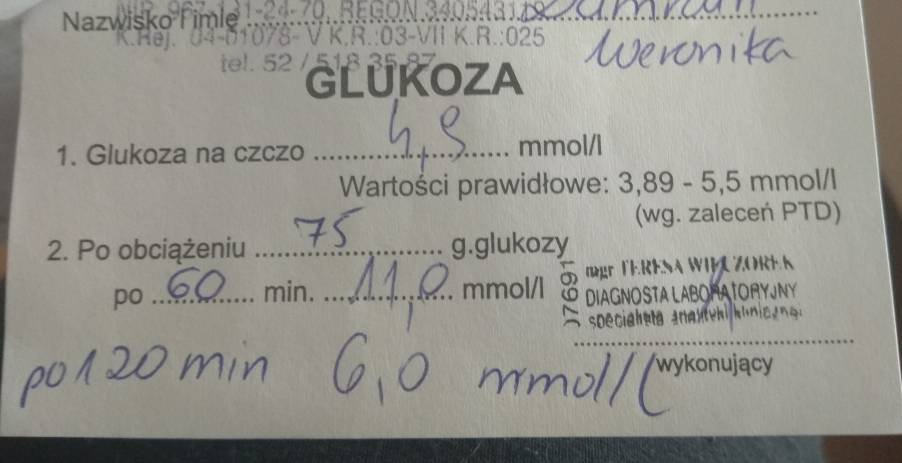 Nazwisko i imię 1-24-70, REGON 3405431
K.Rej. 04-01078- V K.R.:03-VII K.R.:025
Weronika
tel. 52 / 518 35 87
GLUKOZA
1. Glukoza na czczo 4,9 mmol/l
Wartości prawidłowe: 3,89 - 5,5 mmol/l
(wg. zaleceń PTD)
2. Po obciążeniu 75 g.glukozy
po 60 min. 11,0 mmol/l
07691
mgr TERESA WIECZOREK
DIAGNOSTA LABORATORYJNY
specjalista analityki klinicznej
wykonujący
po 120 min 6,0 mmol/l